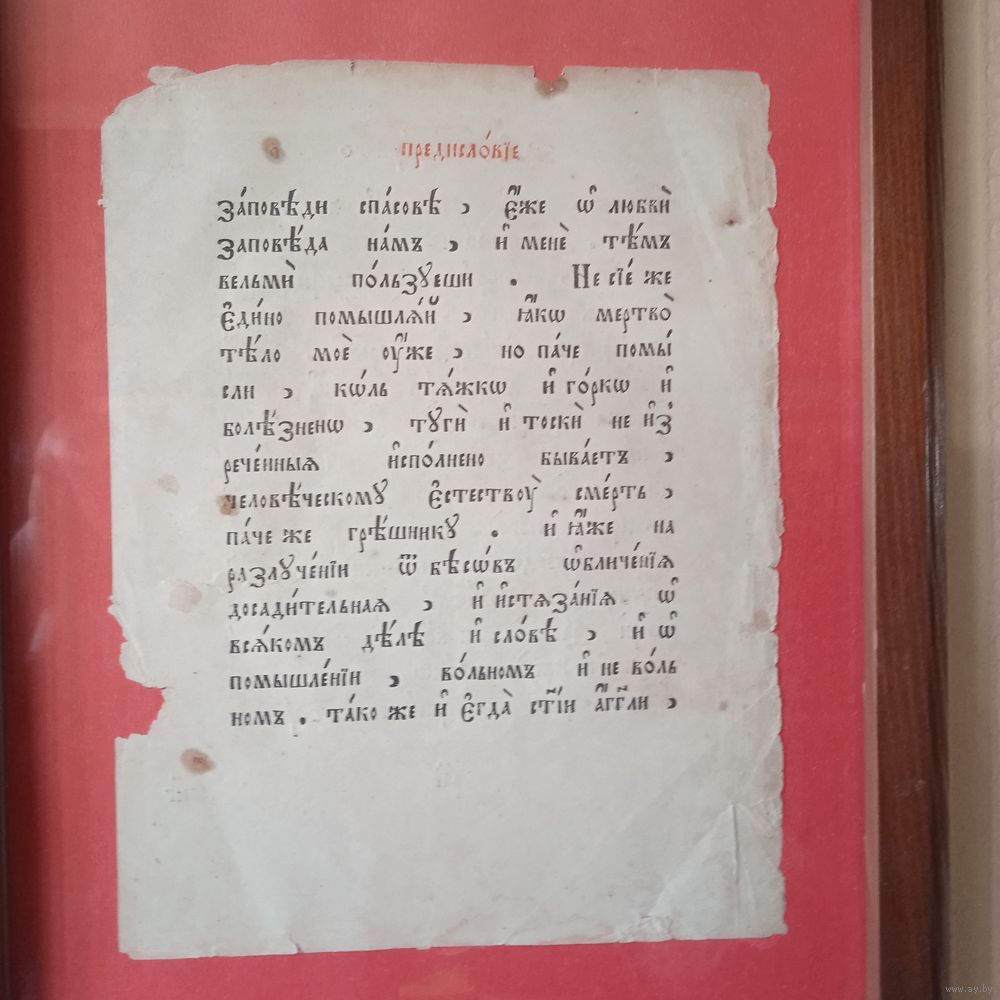 предисло́вїе
за́повѣди спа́совѣ , є҆́же ѡ҆ любвѝ
заповѣ́да на́мъ , и҆ менѐ тѣ́мъ
вельмѝ по́льзꙋеши . Не сїе́ же
є҆ди́но помышлѧ́й , ꙗ҆́кѡ мертво̀
тѣ́ло моѐ оу҆́же , но па́че помы́
сли , ко́ль тѧ́жкѡ и҆ го́ркѡ и҆
болѣ́зненѡ , тꙋгѝ и҆ тоскѝ не и҆з̾
рече́нныѧ и҆спо́лнено быва́етъ ,
человѣ́ческомꙋ є҆стествоу̀ сме́рть ,
па́че же грѣ́шникꙋ . и҆ ꙗ҆́же на
разлꙋче́нїи ѿ бѣсѡ́въ ѡ҆бличе́нїѧ
досади́тельнаѧ , и҆ и҆стѧза́нїѧ ѡ҆
всѧ́комъ дѣ́лѣ и҆ сло́вѣ , и҆ ѡ҆
помышле́нїи , во́льномъ и҆ не во́ль
номъ . та́ко же и҆ є҆гда̀ ст҃і́и а҆́гг҃ли ,
www.ay.by